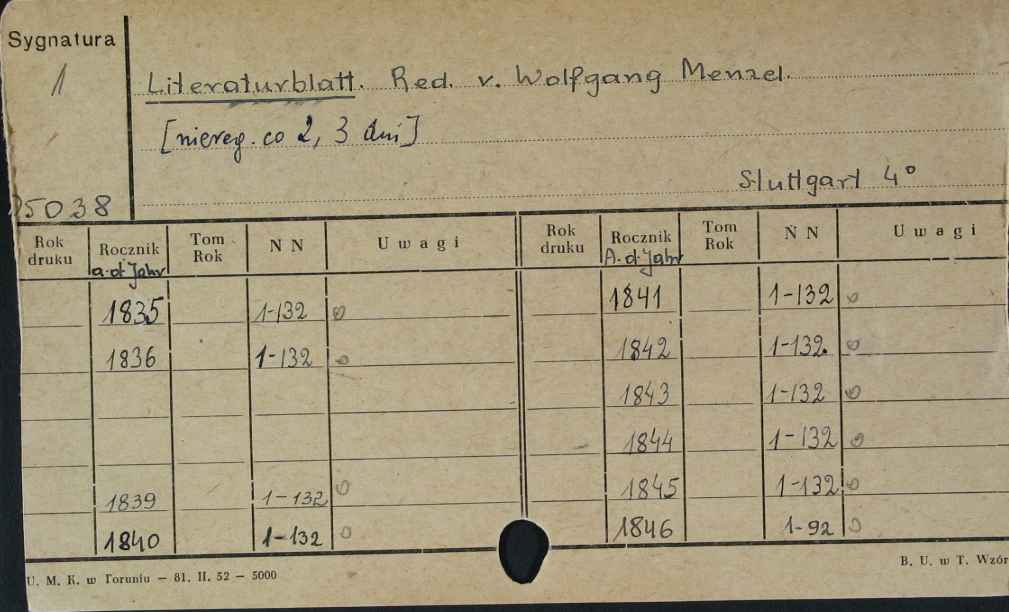 Sygnatura
1
Literaturblatt. Red. v. Wolfgang Menzel.
[niereg. co 2, 3 dni]
Stuttgart 4°
5038
Rok druku Rocznik a.d. Jahr Tom Rok N N Uwagi Rok druku Rocznik A.d. Jahr Tom Rok N N Uwagi
1835 1-132 o 1841 1-132 o
1836 1-132 o 1842 1-132. o
1843 1-132 o
1844 1-132 o
1839 1-132 o 1845 1-132 o
1840 1-132 o 1846 1-92 o
U. M. K. w Toruniu — 81. II. 52 — 5000
B. U. w T. Wzór